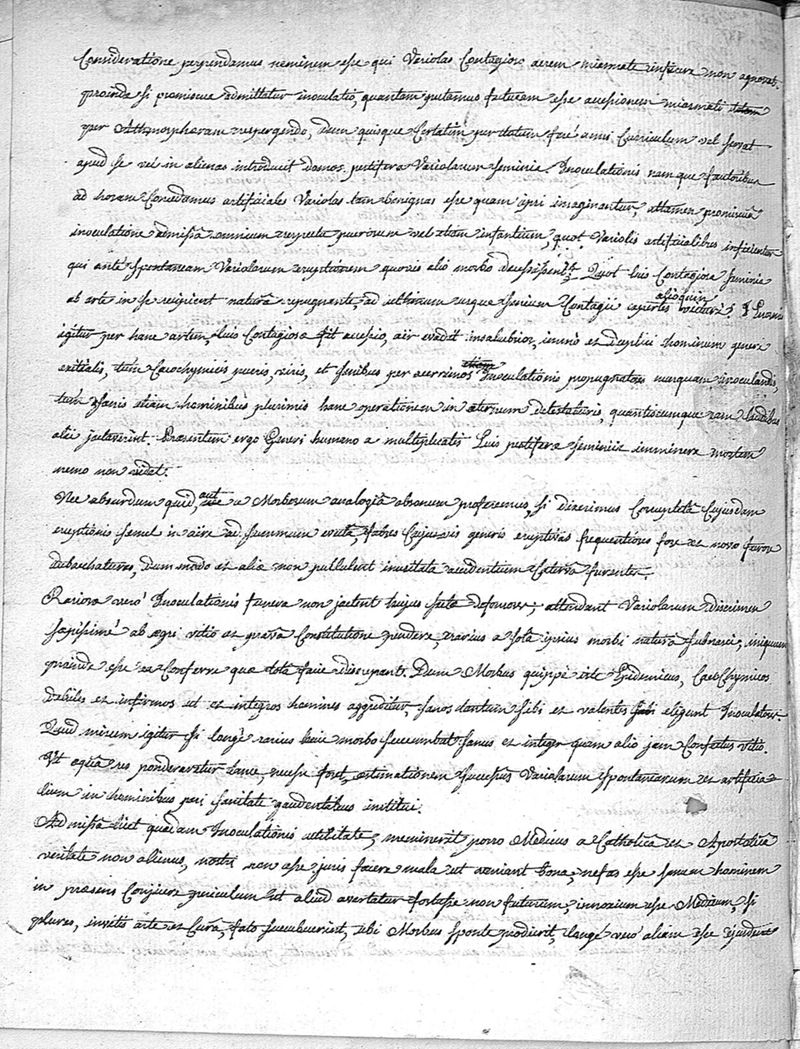 Consideratione perpendamus neminem esse qui Variolas Contagioso aerem miasmate inficere non agnoscat.
proinde si promiscue admittatur inoculatio, quantam putamus futuram esse accessionem miasmati
per Athmospheram respergendo, dum quisque Certatim per totum fac anni Curriculum vel servat
apud se vel in alienas introducit domos pestifera Variolarum seminia. Inoculationis namque fautoribus
ad horam Concedamus artificiales Variolas tam benignas esse quam ipsi imaginantur, attamen promiscuâ
inoculatione admissâ omnium respectu puerorum vel etiam infantium, quot Variolis artificialibus inficientur
qui ante spontaneam Variolarum eruptionem quovis alio morbo decessissent? Quot luis Contagiosæ seminia
ab arte in se recipient naturâ repugnante, ad ultimum usque senium Contagii expertes alioquin victuri?
igitur per hanc artem, luis Contagiosæ fit accessio, aër evadit insalubrior, immò et duplici hominum generi
exitialis, tum Cacochymicis pueris, viris, et senibus per acerrimos Inoculationis propugnatores nunquam inoculandis,
tum sanis etiam hominibus plurimis hanc operationem in æternum detestaturis, quantiscumque eam laudibus
alii jactaverint. Præsentem ergo Generi humano a multiplicatis Luis pestiferæ seminiis imminere mortem
nemo non videt.
Nec absurdum quid, aut a Morborum analogiâ absonum proferemus, si dixerimus Corruptelâ Cujusdam
eruptionis semel in aëre ad summum evectâ, febres Cujusvis generis eruptivas frequentiores fore et novo furore
debacchaturas, dum modo et aliæ non pullulent inusitatâ accidentium Catervâ furentes.
Rariora verò Inoculationis funera non jactent hujus defensores; attendant Variolarum discrimen
sæpissimè ab ægri vitio et pravâ Constitutione pendere, rarius a solâ ipsius morbi naturâ subnasci, iniquum
proinde esse ea Conferre quæ totâ facie discrepant. Dum Morbus quippè ille Epidemicus, Cacochymicos
debiles et infirmos ut et integros homines aggreditur, sanos tantum sibi et valentes eligunt Inoculatores.
Quid mirum igitur si longè rarius huic morbo succumbat sanus et integer quam alio jam Confectus vitio.
Ut æquâ res ponderaretur lance, necesse foret, æstimationem successûs Variolarum spontanearum et artificia-
lium in hominibus pari sanitate gaudentibus institui.
Admissâ licet quadam Inoculationis utilitate, meminerit porro Medicus a Catholicâ et Apostolicâ
veritate non alienus, nostri non esse juris facere mala ut veniant bona, nefas esse sanum hominem
in præsens Conjicere periculum ut aliud avertatur fortasse non futurum, innoxium esse Medicum, si
plures, invitis arte et Curâ, fato succubuerint, ubi Morbus sponte prodierit, longè verò aliam esse ejusdem